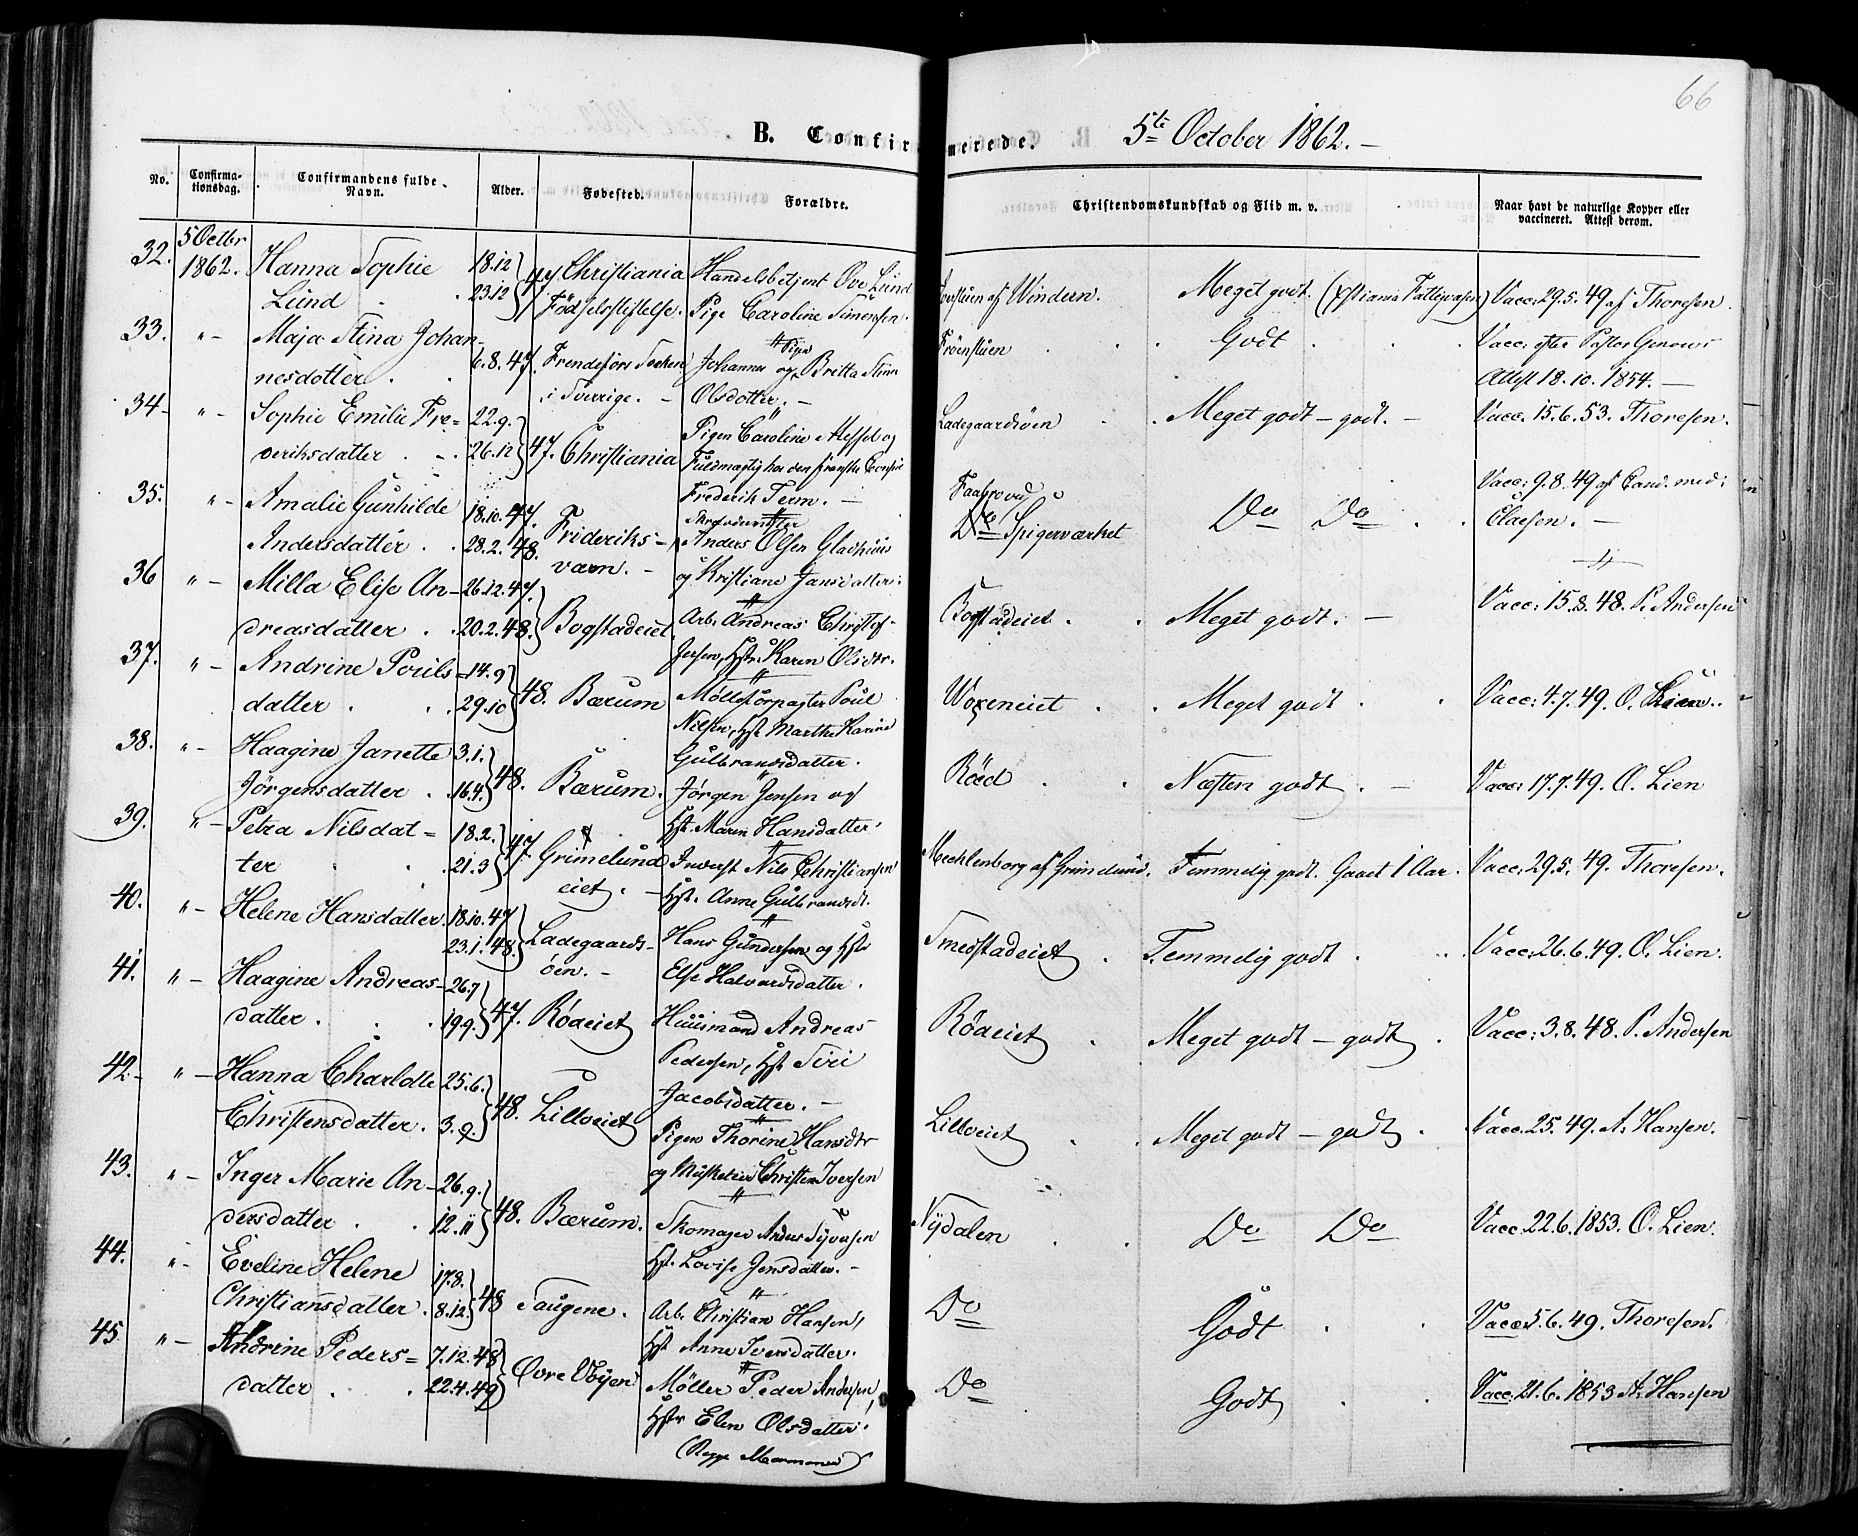 66
B. Confirmerede. 5te October 1862. –
No. Confirmationsdag. Confirmandens fulde Navn. Alder. Fødested. Forældre. Christendomskundskab og Flid m. v. Naar havt de naturlige Kopper eller vaccineret. Attest derom.
32. 5 Octbr 1862. Hanna Sophie 18.12 47 Christiania Handelsbetjent Ove Lund
Lund 23.12 Födselsstiftelse. Pige Caroline Simensen.
af Vindern. Meget godt. (Xstiania Fattigvæsen) Vacc: 29.5.49 af Thoresen.
33. " – Maja Stina Johan- 6.8.47. Socken Johannes og Pige Britta Stina
nesdotter . . i Sverrige. – Olsdotter. –
Frøenstuen . . Godt . . Vacc: efter Pastor
Attest 18.10.1854. –
34 " – Sophie Emilie Fre= 22.9. 47. Christiania Pigen Caroline Messel og
deriksdatter . . 26.12 Fuldmægtig hos den franske Consul
Frederik Term. –
Ladegaardsöen . . Meget godt – godt. – Vacc: 15.6.53. Thoresen.
35. " – Amalie Gunhilde 18.10.47. Frideriks-
Andersdatter . . 28.2.48. værn. – Anders Olsen Gladhuus
og Kristiane Jansdatter.
Faabro ved
Spigerværket Do Do . . Vacc: 9.8.49 af Cand. med:
Claesen. –
36 " – Milla Elise An- 26.12.47. Bogstadeiet Arb. Andreas Christof-
dreasdatter . . 20.2.48. fersen, Hstr. Karen Olsdtr.
Bogstadeiet . . Meget godt. – Vacc: 15.8.48. P. Andersen
37. " – Andrine Pouls= 14.9 48. Bærum Møllefoørpagter Poul
datter . . 29.10 Nilsen, Hst Marthe Karine
Gulbrandsdatter.
Voxeneiet . . Meget godt . . Vacc: 4.7.49. O. Lien.
38. " – Haagine Janette 3.1. 48. Bærum. Jørgen Jensen og
Jörgensdatter . . 16.4. Hst. Maren Hansdatter.
Röed . . Næsten godt . – Vacc: 17.7.49. O. Lien
39. " – Petra Nilsdat= 18.2. 47. Grimelund Inderst Nils Christiansen
ter . . 21.3 eiet. – Hst. Anne Gulbrandsdt.
Mechlenborg af Grimelund. Temmelig godt. Gaaet 1 Aar. Vacc: 29.5.49. Thoresen.
40. " – Helene Hansdatter 18.10.47 Ladegaards- Hans Gundersen og Hstr
23.1.48. öen. – Else Halvardsdatter.
Smedstadeiet . Temmelig godt . . Vacc: 26.6.49. O. Lien.
41. " – Haagine Andreas- 26.7 47. Röaeiet Huusmand Andreas
datter . . 19.9. Pedersen, Hst Siri
Jacobsdatter. –
Röaeiet . Meget godt – godt . Vacc: 3.8.48. P. Andersen
42 " – Hanna Charlotte 25.6. 48. Lilloeiet Pigen Thorine Hansdtr
Christensdatter. 3.9. og Musketeer Christen Iversen
Lilloeiet . . Meget godt – godt . Vacc. 25.49. A. Hansen.
43. " – Inger Marie An- 26.9. 48. Bærum. Skomager Anders Syversen
dersdatter . . 12.11 Hst. Lovise Jensdatter. –
Nydalen . . Do Do Vacc. 22.6.1853. O. Lien.
44. " – Eveline Helene 17.8. 48 Saugene. Arb. Christian Hansen,
Christiansdatter . 8.12. Hst Anne Iversdatter.
Do Godt . . Vacc: 5.6.49. Thoresen.
45 " – Andrine Peders= 7.12.48 Øvre Vöyen Møller Peder Andersen,
datter . . 22.4.49 Hstr Elen Olsdatter.
Do Godt . . Vacc: 21.6.1853 A. Hansen